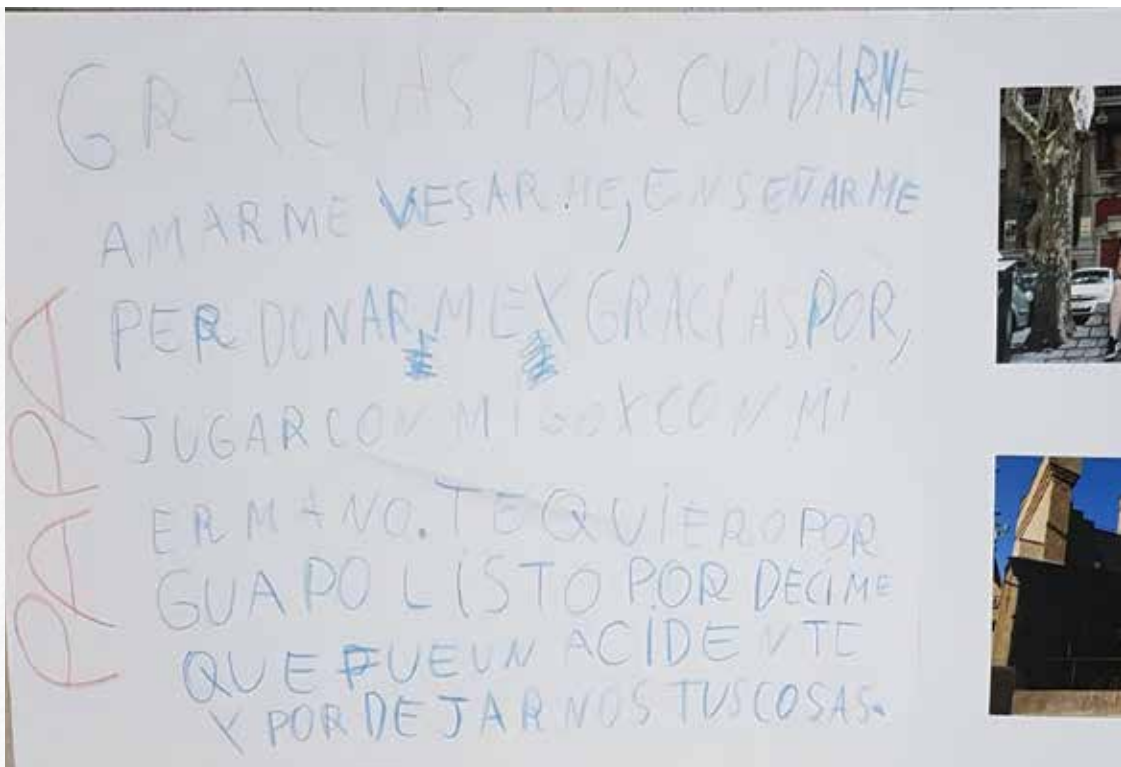 GRACIAS POR CUIDARME
AMARME VESARME, ENSEÑARME
PERDONARME Y GRACIAS POR,
JUGAR CONMIGO Y CON MI
ERMANO. TE QUIERO POR
GUAPO LISTO POR DECIME
QUE FUE UN ACIDENTE
Y POR DEJARNOS TUS COSAS.
PAPA